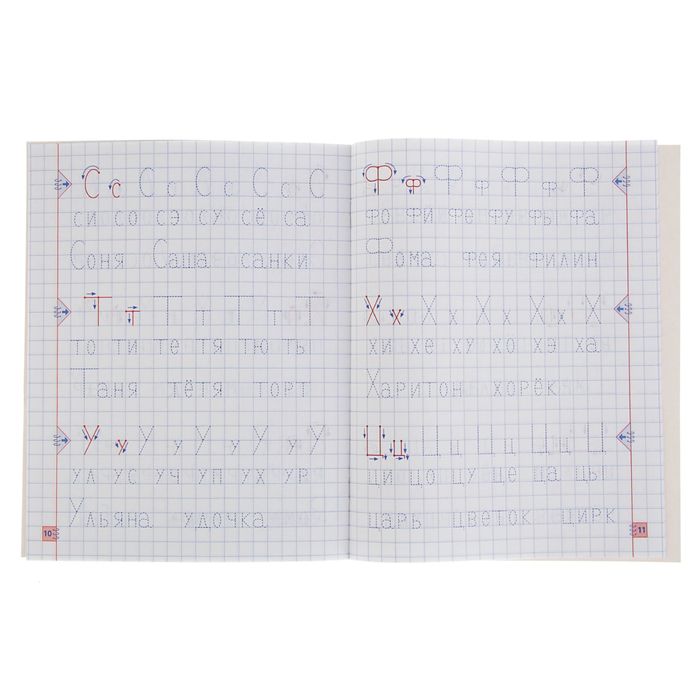 С с С с С с С с С
си со сэ су сё са
Соня Саша санки
Т т Т т Т т Т
то ти те тя тю ты
Таня тётя торт
У у У у У у У у У
ул ус уч уп ух ур
Ульяна удочка
10
Ф ф Ф ф Ф ф Ф
фо фи фе фу фы фа
Фома фея филин
Х х Х х Х х Х х Х
хи хе ху хо хэ ха
Харитон хорёк
Ц ц Ц ц Ц ц Ц ц Ц
ци цо цу це ца цы
царь цветок цирк
11